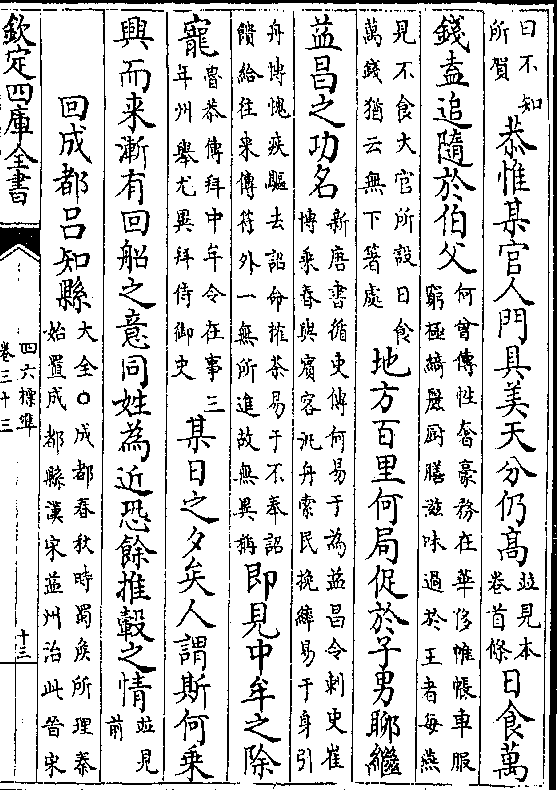 曰不知
所賀
恭惟某官人門具美天分仍髙
並見本
卷首條
日食萬
錢盍追隨於伯父
何曾傳性奢豪務在華侈帷帳車服
窮極綺麗厨膳滋味過於王者每燕
見不食大官所設日食
萬錢猶云無下箸處
地方百里何局促於子男聊繼
益昌之功名
新唐書循吏傳何易于為益昌令刺史崔
博乘春與賓客汎舟索民挽繂易于身引
舟博愧疾驅去詔命搉茶易于不奉詔
饋給往來傳符外一無所進故無異稱
即見中牟之除
寵
魯恭傳拜中牟令在事三
年州舉尤異拜侍御史
某日之夕矣人謂斯何乗
興而来漸有回船之意同姓為近恐餘推轂之情
並見
前
回成都吕知縣
大全○成都春秋時蜀侯所理秦
始置成都縣漢宋益州治此晉宋
欽定四庫全書
四六標準
卷三十三
十三